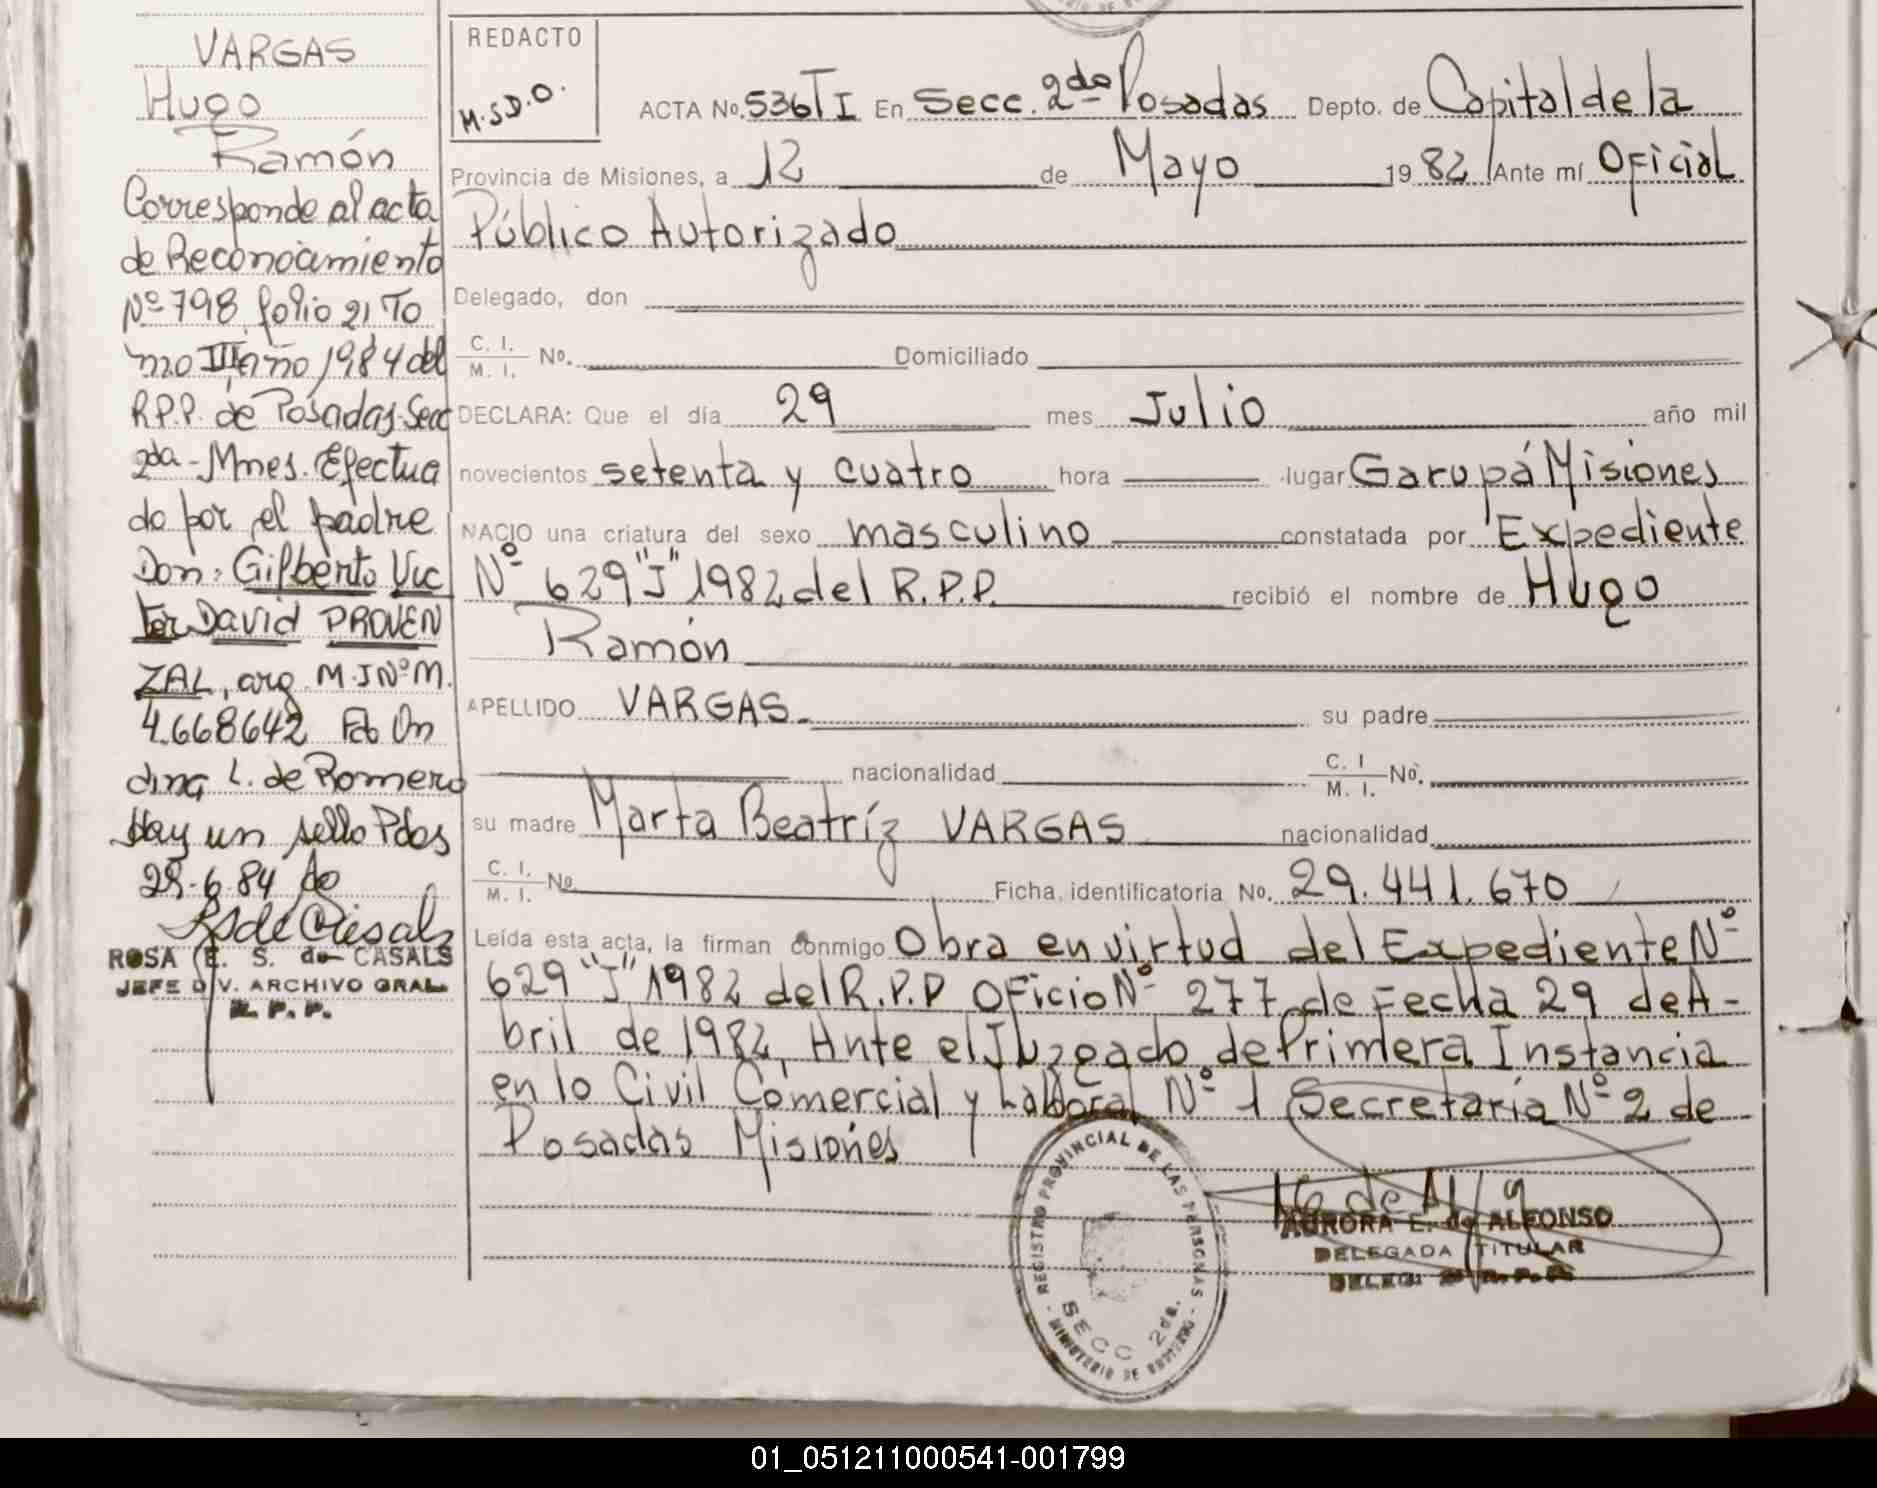 VARGAS
Hugo
Ramón
Corresponde al acta
de Reconocimiento
Nº 798 folio 21 To
mo III año 1984 del
R.P.P. de Posadas-Secc
2da - Mnes. Efectua
do por el padre
Don: Gilberto Vic
tor David PROVEN
ZAL, arg. M.I Nº M.
4.668642 Fdo On
dina L. de Romero
Hay un sello Pdas
28-6-84
ROSA E. S. de CASALS
JEFE DIV. ARCHIVO GRAL
R. P. P.
REDACTO
M.S.D.O.
ACTA No. 536 T I En Secc. 2da Posadas Depto. de Capital de la
Provincia de Misiones, a 12 de Mayo 1982 Ante mí Oficial
Público Autorizado
Delegado, don
C. I. / M. I. No. Domiciliado
DECLARA: Que el día 29 mes Julio año mil
novecientos setenta y cuatro hora lugar Garupá Misiones
NACIO una criatura del sexo masculino constatada por Expediente
Nº 629 "J" 1982 del R.P.P. recibió el nombre de Hugo
Ramón
APELLIDO VARGAS su padre
nacionalidad C. I / M. I. No.
su madre Marta Beatríz VARGAS nacionalidad
C. I. / M. I. No Ficha identificatoria No. 29.441.670
Leída esta acta, la firman conmigo Obra en virtud del Expediente Nº
629 "J" 1982 del R.P.P Oficio Nº 277 de Fecha 29 de A-
bril de 1982, Ante el Juzgado de Primera Instancia
en lo Civil Comercial y Laboral Nº 1 Secretaría Nº 2 de
Posadas Misiones
REGISTRO PROVINCIAL DE LAS PERSONAS
SECC 2da.
MINISTERIO DE GOBIERNO
AURORA E. de ALFONSO
DELEGADA TITULAR
01_051211000541-001799